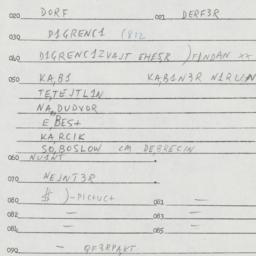 020 DORF 021 DERF3R
030 D1GRENC1 (812
040 D1GRENC1ZVAJT EHESR )F1NDAN XX
050 KA,B1 KA,B1N3R N1RUN
TE,TEJTL1N
NA,DUDVOR
E,BES+
KA,RC1K
SO,BOSLOW CM DEBREC1N
060 NU1NT .
070 NEJNT3R .
080 $ )-P1CTUC+ 081 —
082 — 083 —
084 — 085 —
090 — QF3RPAKT